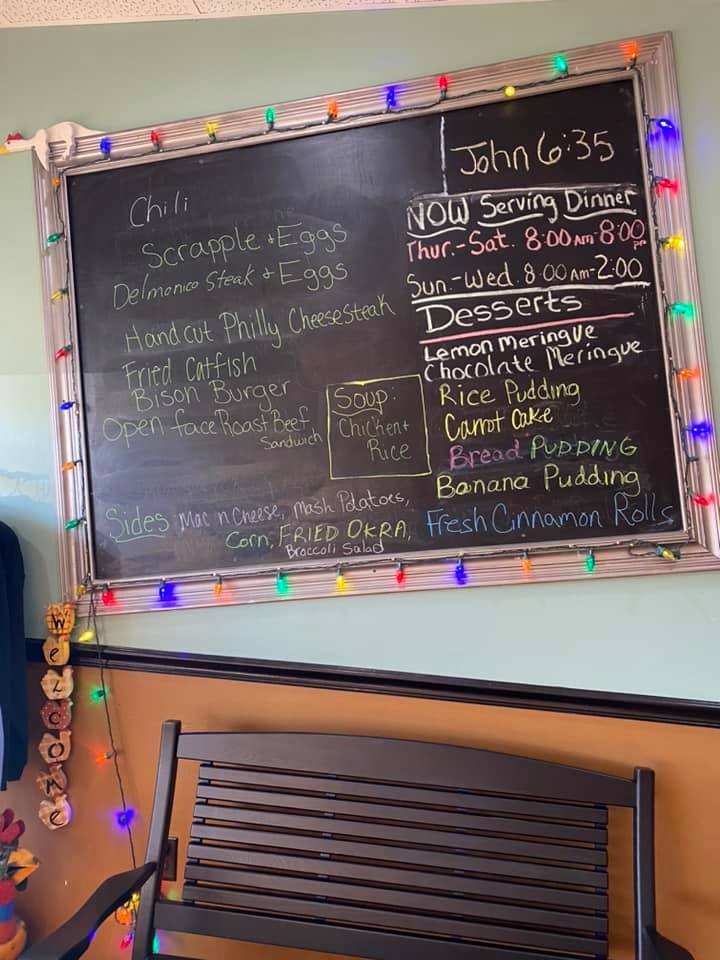 Chili
Scrapple + Eggs
Delmonico Steak + Eggs
Handcut Philly Cheesesteak
Fried Catfish
Bison Burger
Open face Roast Beef
Sandwich
Soup:
Chicken +
Rice
Sides Mac n Cheese, Mash Potatoes,
Corn, FRIED OKRA,
Broccoli Salad
John 6:35
NOW Serving Dinner
Thur.-Sat. 8:00 Am-8:00 pm
Sun.-Wed. 8:00 Am-2:00
Desserts
Lemon Meringue
Chocolate Meringue
Rice Pudding
Carrot Cake
Bread PUDDING
Banana Pudding
Fresh Cinnamon Rolls
WeLcome